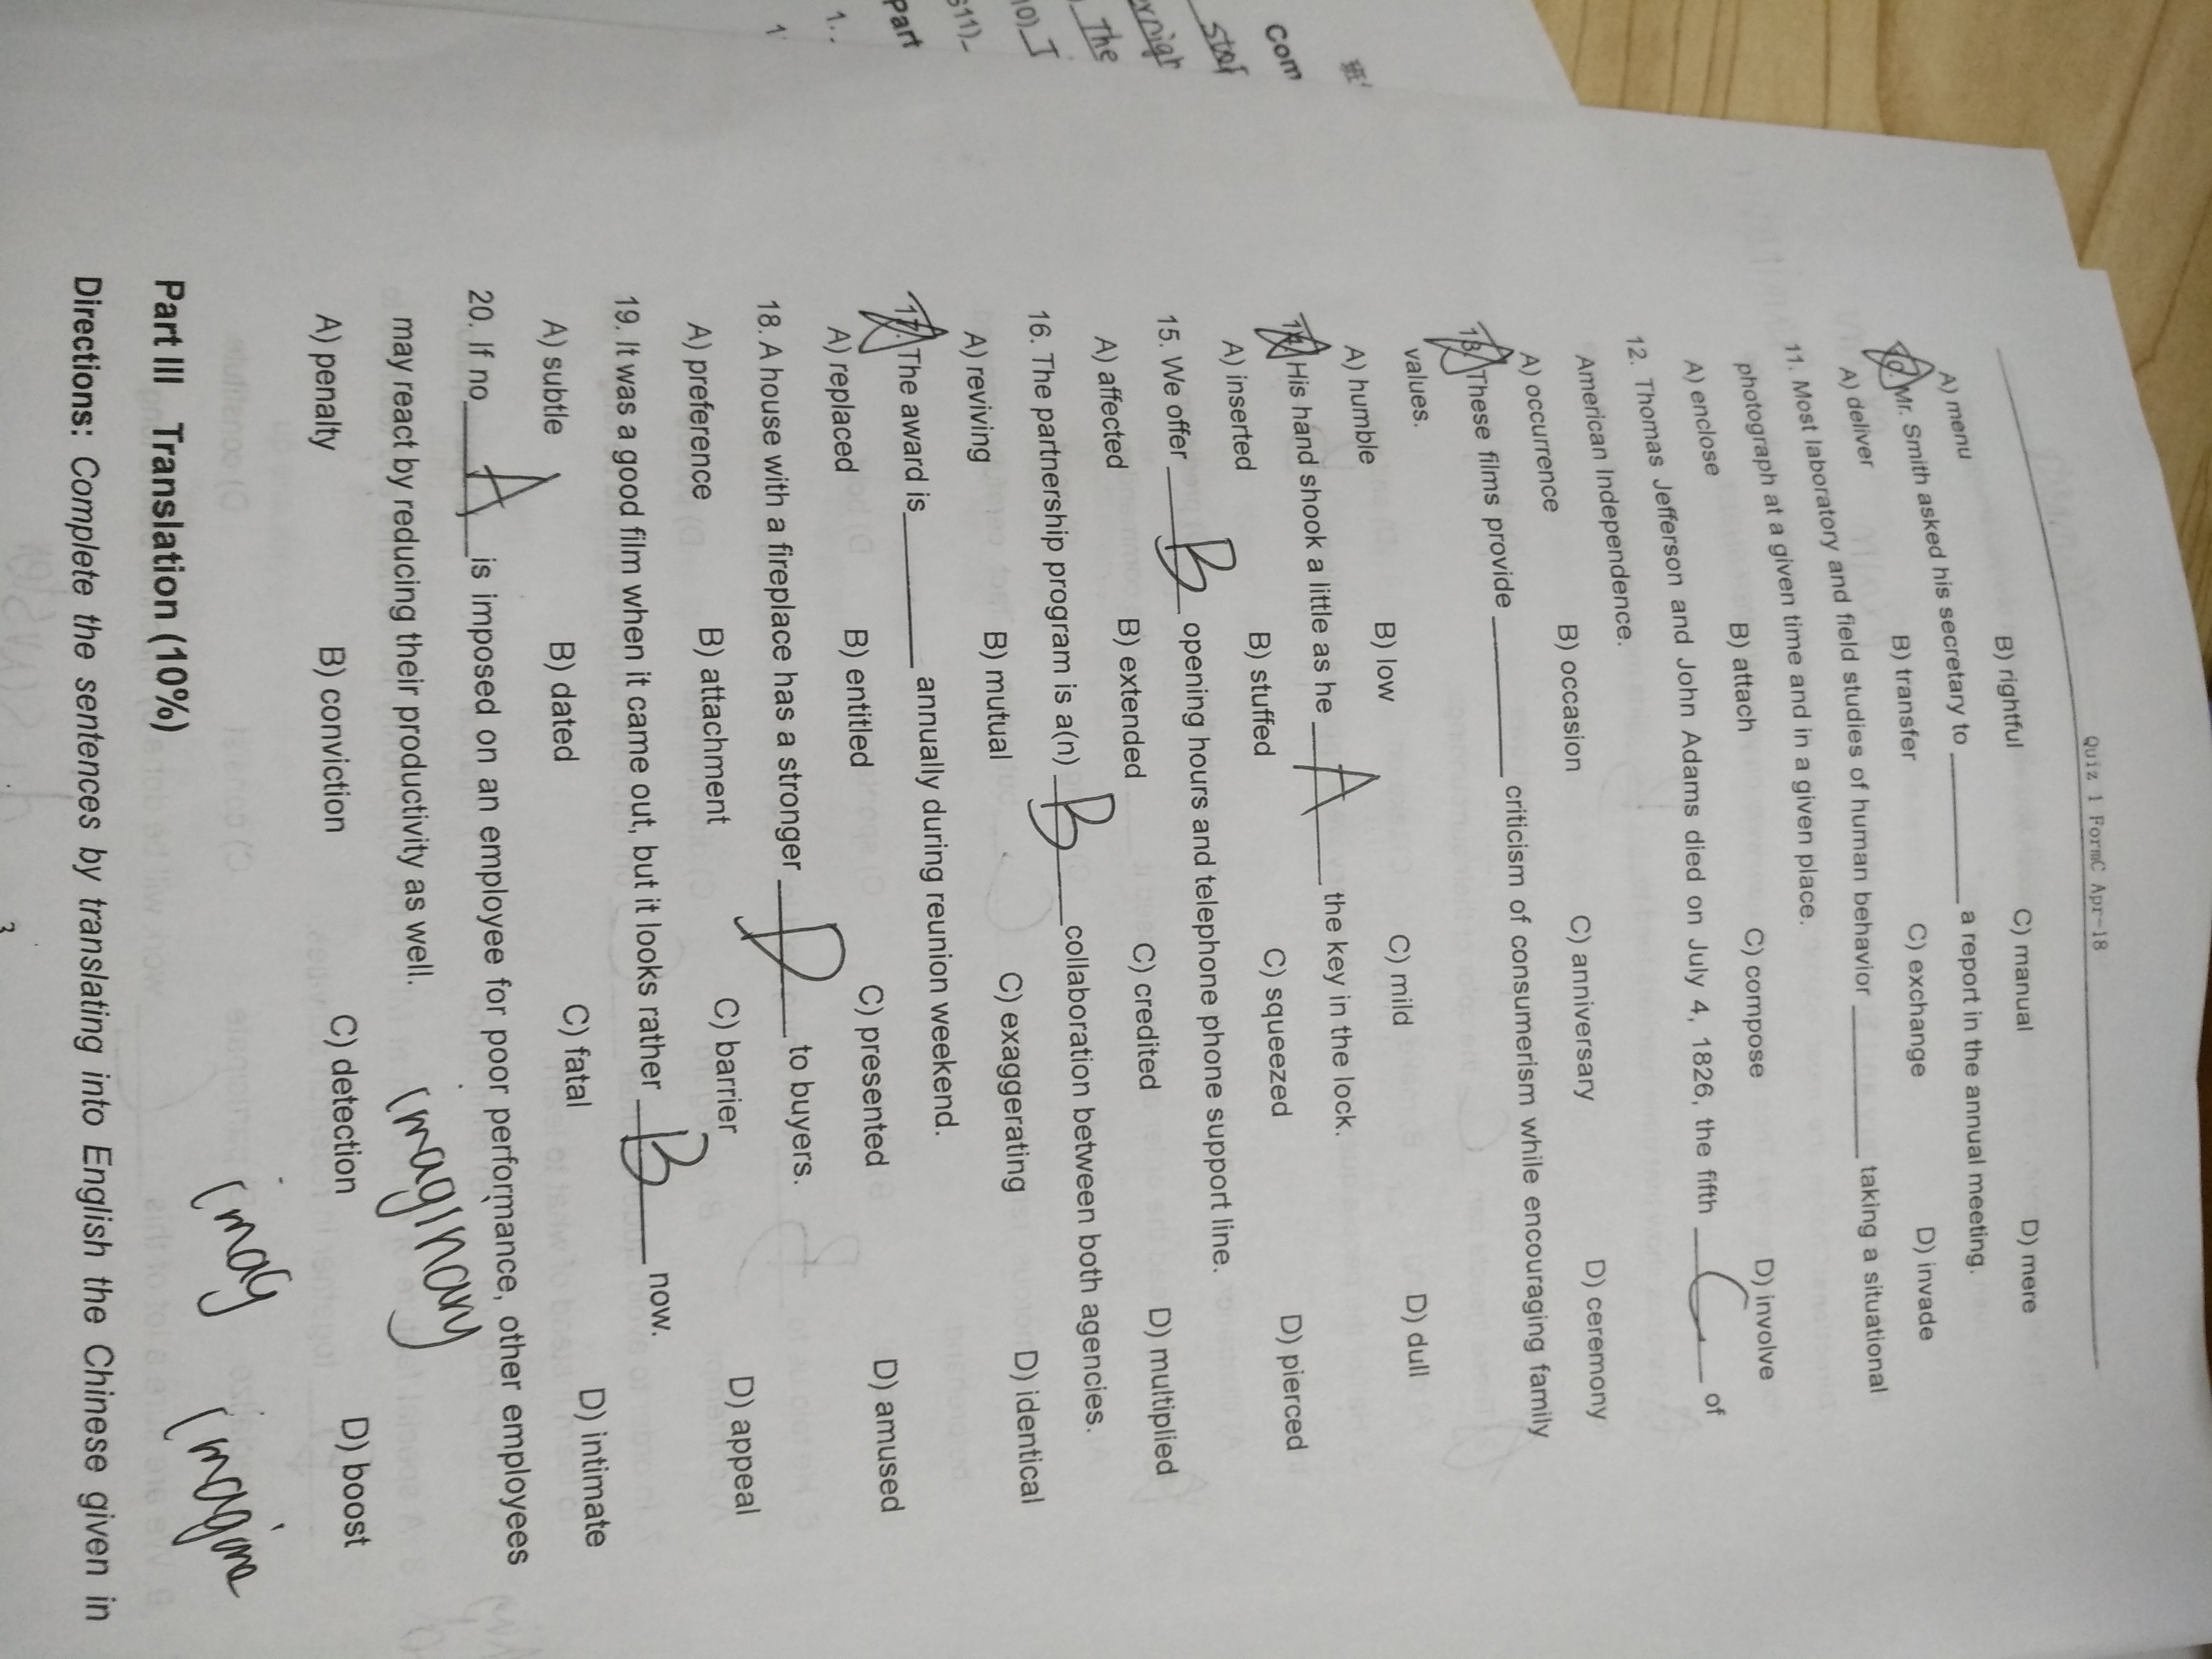 Quiz 1 FormC Apr-18
A) menu B) rightful C) manual D) mere
10. Mr. Smith asked his secretary to __________ a report in the annual meeting.
A) deliver B) transfer C) exchange D) invade
11. Most laboratory and field studies of human behavior __________ taking a situational
photograph at a given time and in a given place.
A) enclose B) attach C) compose D) involve
12. Thomas Jefferson and John Adams died on July 4, 1826, the fifth C of
American Independence.
A) occurrence B) occasion C) anniversary D) ceremony
13. These films provide __________ criticism of consumerism while encouraging family
values.
A) humble B) low C) mild D) dull
14. His hand shook a little as he A the key in the lock.
A) inserted B) stuffed C) squeezed D) pierced
15. We offer B opening hours and telephone phone support line.
A) affected B) extended C) credited D) multiplied
16. The partnership program is a(n) B collaboration between both agencies.
A) reviving B) mutual C) exaggerating D) identical
17. The award is__________ annually during reunion weekend.
A) replaced B) entitled C) presented D) amused
18. A house with a fireplace has a stronger D to buyers.
A) preference B) attachment C) barrier D) appeal
19. It was a good film when it came out, but it looks rather B now.
A) subtle B) dated C) fatal D) intimate
20. If no A is imposed on an employee for poor performance, other employees
may react by reducing their productivity as well.
imaginary
A) penalty B) conviction C) detection D) boost
imag imagine
Part III Translation (10%)
Directions: Complete the sentences by translating into English the Chinese given in
3
班
Com
The
10) J
S11)
Part
1.
1